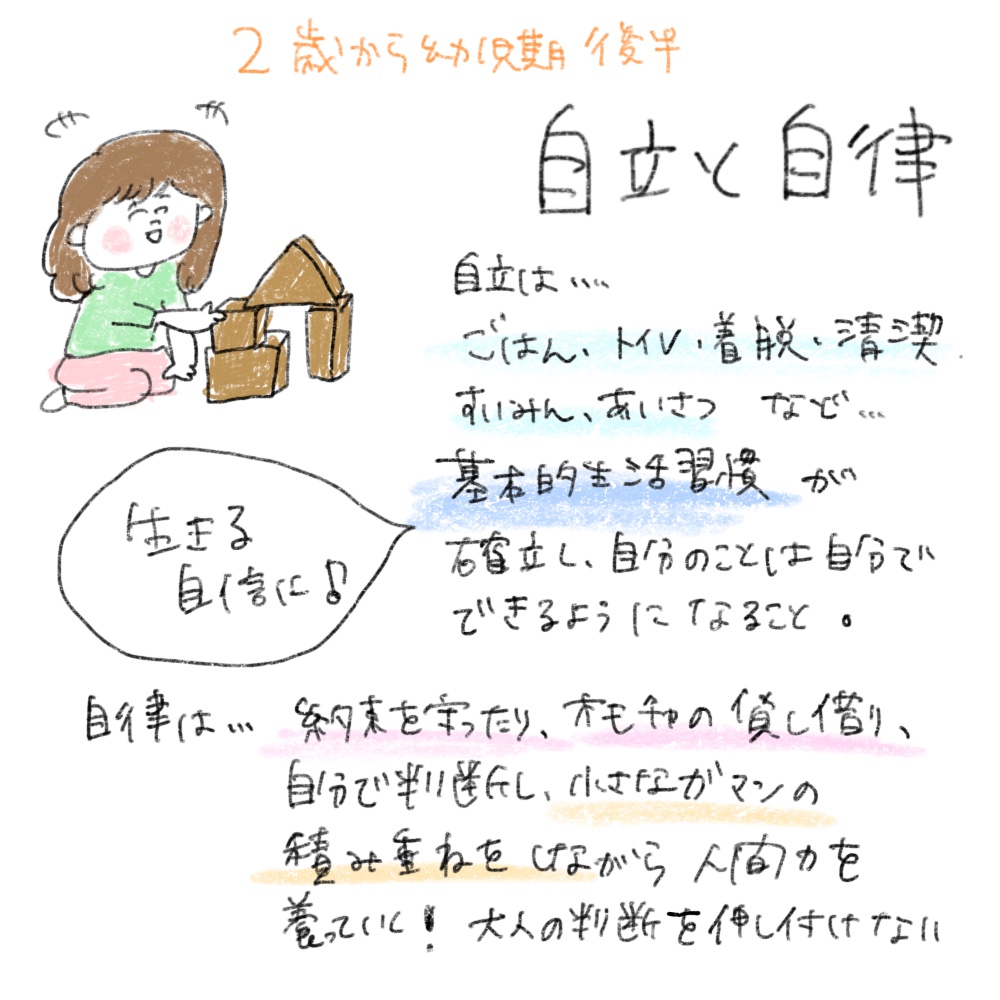 2歳から幼児期後半
自立と自律
自立は….
ごはん、トイレ・着脱・清潔
すいみん、あいさつ など…
基本的生活習慣が
確立し、自分のことは自分で
できるようになること。
生きる
自信に♪
自律は… 約束を守ったり、オモチャの貸し借り、
自分で判断し、小さなガマンの
積み重ねをしながら 人間力を
養っていく! 大人の判断を押し付けない